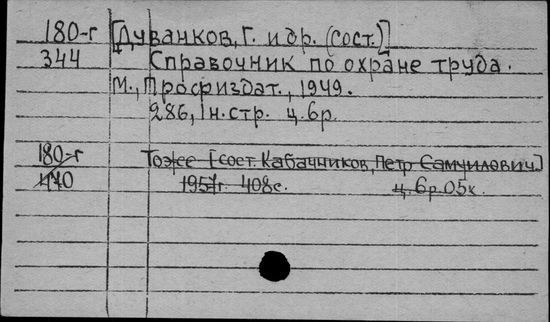 180-г [Дуванков, Г. и др. (сост.)]
344 Справочник по охране труда.
М., Профиздат., 1949.
286, 1 н. стр. ц. 6 р.
180-г То же [сост. Кабачников, Петр Самуилович]
470 1957 г. 408 с. ц. 6 р. 05 к.